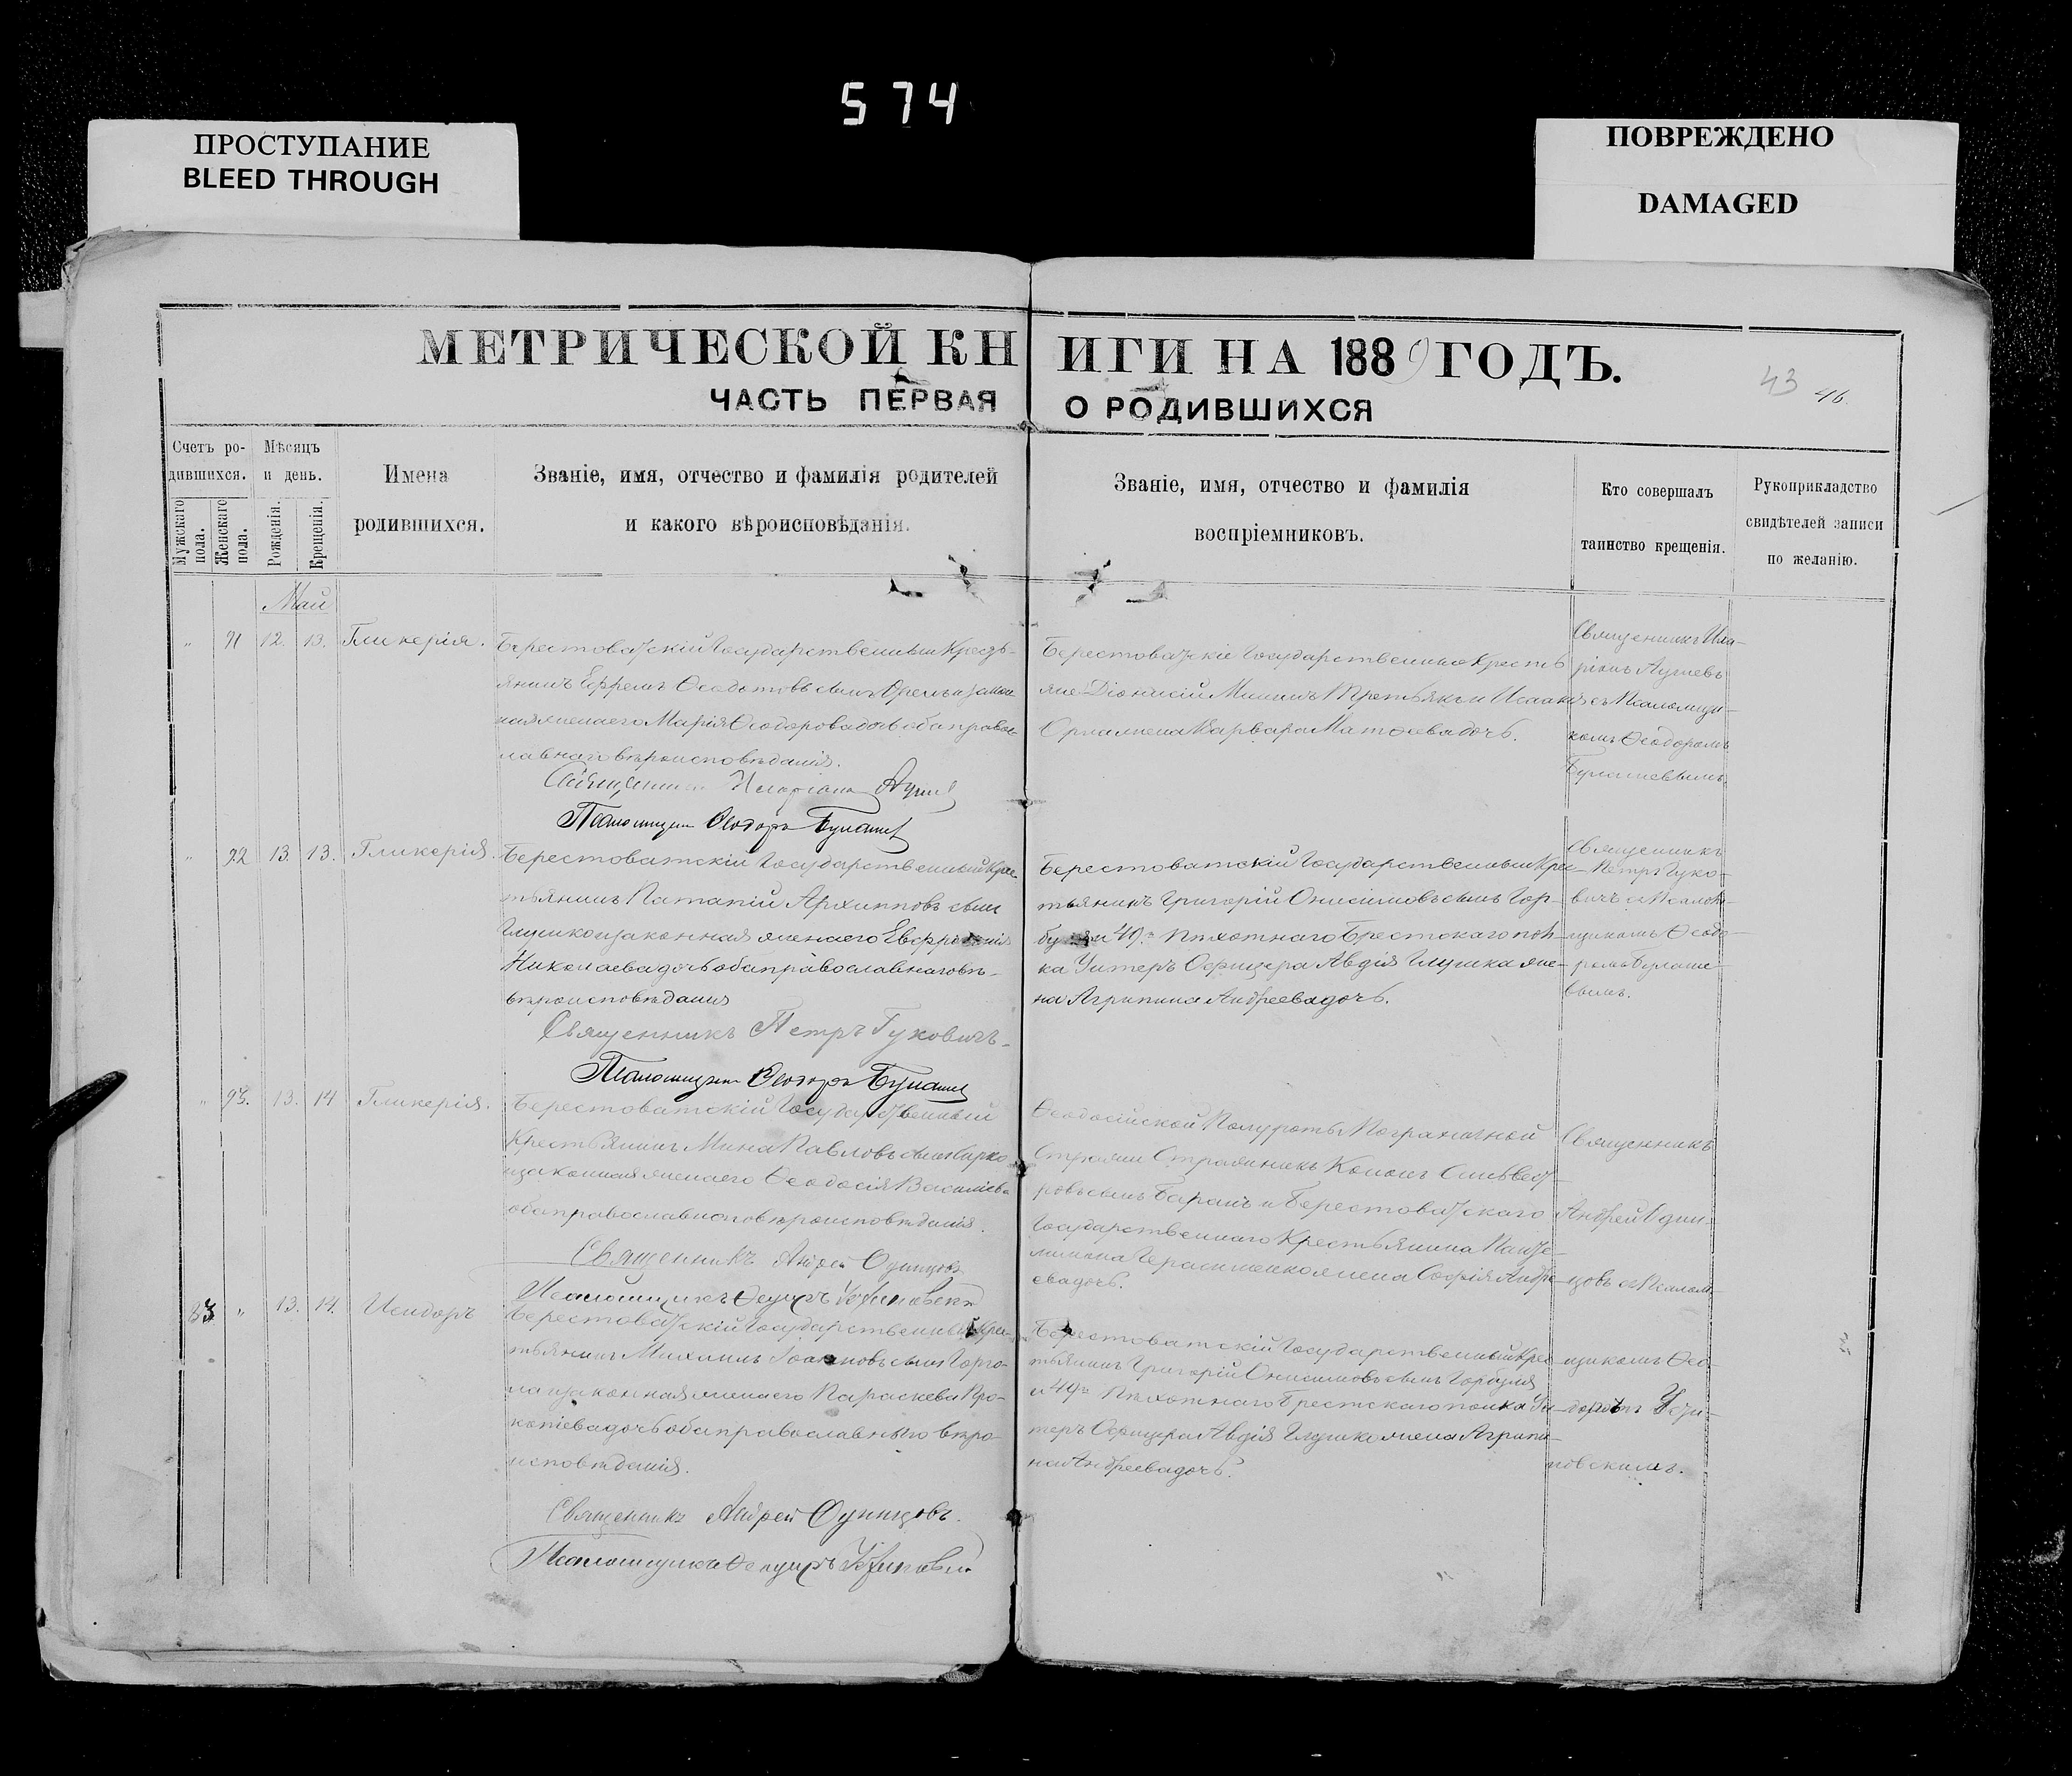 574
ПРОСТУПАНИЕ
BLEED THROUGH
ПОВРЕЖДЕНО
DAMAGED
МЕТРИЧЕСКОЙ КНИГИ НА 1889 ГОДЪ.
ЧАСТЬ ПЕРВАЯ О РОДИВШИХСЯ
43 46.
Счетъ ро-
дившихся.
Мужскаго пола.
Женскаго пола.
Мѣсяцъ
и день.
Рожденія.
Крещенія.
Имена
родившихся.
Званіе, имя, отчество и фамилія родителей
и какого вѣроисповѣданія.
Званіе, имя, отчество и фамилія
воспріемниковъ.
Кто совершалъ
таинство крещенія.
Рукоприкладство
свидѣтелей записи
по желанію.
Май
" 91 12. 13. Гликерія.
Берестоватскій Государственный Кресть-
янинъ Ефремъ Ѳеодотовъ сынъ и закон
ная жена его Марія Ѳеодорова дочь оба правос
лавнаго вѣроисповѣданія.
Священникъ Иларіонъ
Псаломщикъ Ѳеодоръ
Берестоватскіе Государственные Кресть
яне Діонисій Мининъ Третьякъ и Исаакія
жена Варвара Матѳеева дочь.
Священникъ Ила-
ріонъ
съ Псаломщи-
комъ Ѳеодоромъ
" 92 13. 13. Гликерія.
Берестоватскій Государственный Крес
тьянинъ Патапій Архиповъ сынъ
Глушко и законная жена его Евфросинія
Николаева дочь оба православнаго вѣ-
вѣроисповѣданія
Священникъ Петръ Гуковичъ.
Псаломщикъ Ѳеодоръ
Берестоватскій Государственный Крес-
тьянинъ Григорій Онисимовъ сынъ Гор-
и 49го Пѣхотнаго Брестскаго пол-
ка Унтеръ Офицера Авдія Глушка же-
на Агрипина Андреева дочь.
Священникъ
Петръ Гуко-
вичъ съ Псалом-
щикомъ Ѳеодо-
ромъ
" 93. 13. 14 Гликерія.
Берестоватскій Государственный
Крестьянинъ Мина Павловъ сынъ
и законная жена его Ѳеодосія Василіева
оба православнаго вѣроисповѣданія.
Священникъ Андрей Одинцовъ
Псаломщикъ
Ѳеодосійской Полуроты Пограничной
Стражи Стражникъ Кононъ Сильвест-
ровъ сынъ Баранъ и Берестоватскаго
Государственнаго Крестьянина Панте-
лимона Герасименко жена Софія Андре-
евa дочь.
Священникъ
Андрей Один-
цовъ съ Псалом-
83 " 13. 14. Исидоръ
Берестоватскій Государственный Крес-
тьянинъ Михаилъ Іоанновъ сынъ
и законная жена его Параскева Про-
копіева дочь оба православнаго вѣро-
исповѣданія.
Священникъ Андрей Одинцовъ.
Псаломщикъ
Берестоватскій Государственный Крес-
тьянинъ Григорій Онисимовъ сынъ
и 49го Пѣхотнаго Брестскаго полка Ун-
теръ Офицера Авдія Глушко жена Агрипи-
на Андреева дочь.
щикомъ Ѳео-
доромъ